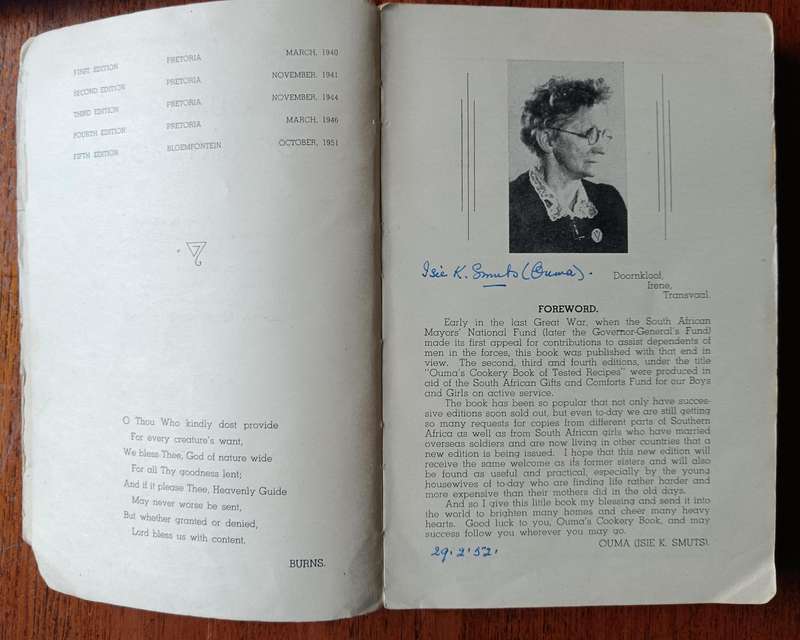 FIRST EDITION PRETORIA MARCH, 1940
SECOND EDITION PRETORIA NOVEMBER, 1941
THIRD EDITION PRETORIA NOVEMBER, 1944
FOURTH EDITION PRETORIA MARCH, 1946
FIFTH EDITION BLOEMFONTEIN OCTOBER, 1951
O Thou Who kindly dost provide
For every creature's want,
We bless Thee, God of nature wide
For all Thy goodness lent;
And if it please Thee, Heavenly Guide
May never worse be sent,
But whether granted or denied,
Lord bless us with content.
BURNS.
Isie K. Smuts (Ouma).
Doornkloof,
Irene,
Transvaal.
FOREWORD.
Early in the last Great War, when the South African
Mayors' National Fund (later the Governor-General's Fund)
made its first appeal for contributions to assist dependents of
men in the forces, this book was published with that end in
view. The second, third and fourth editions, under the title
"Ouma's Cookery Book of Tested Recipes" were produced in
aid of the South African Gifts and Comforts Fund for our Boys
and Girls on active service.
The book has been so popular that not only have succes-
sive editions soon sold out, but even to-day we are still getting
so many requests for copies from different parts of Southern
Africa as well as from South African girls who have married
overseas soldiers and are now living in other countries that a
new edition is being issued. I hope that this new edition will
receive the same welcome as its former sisters and will also
be found as useful and practical, especially by the young
housewives of to-day who are finding life rather harder and
more expensive than their mothers did in the old days.
And so I give this little book my blessing and send it into
the world to brighten many homes and cheer many heavy
hearts. Good luck to you, Ouma's Cookery Book, and may
success follow you wherever you may go.
OUMA (ISIE K. SMUTS).
29.2.52.